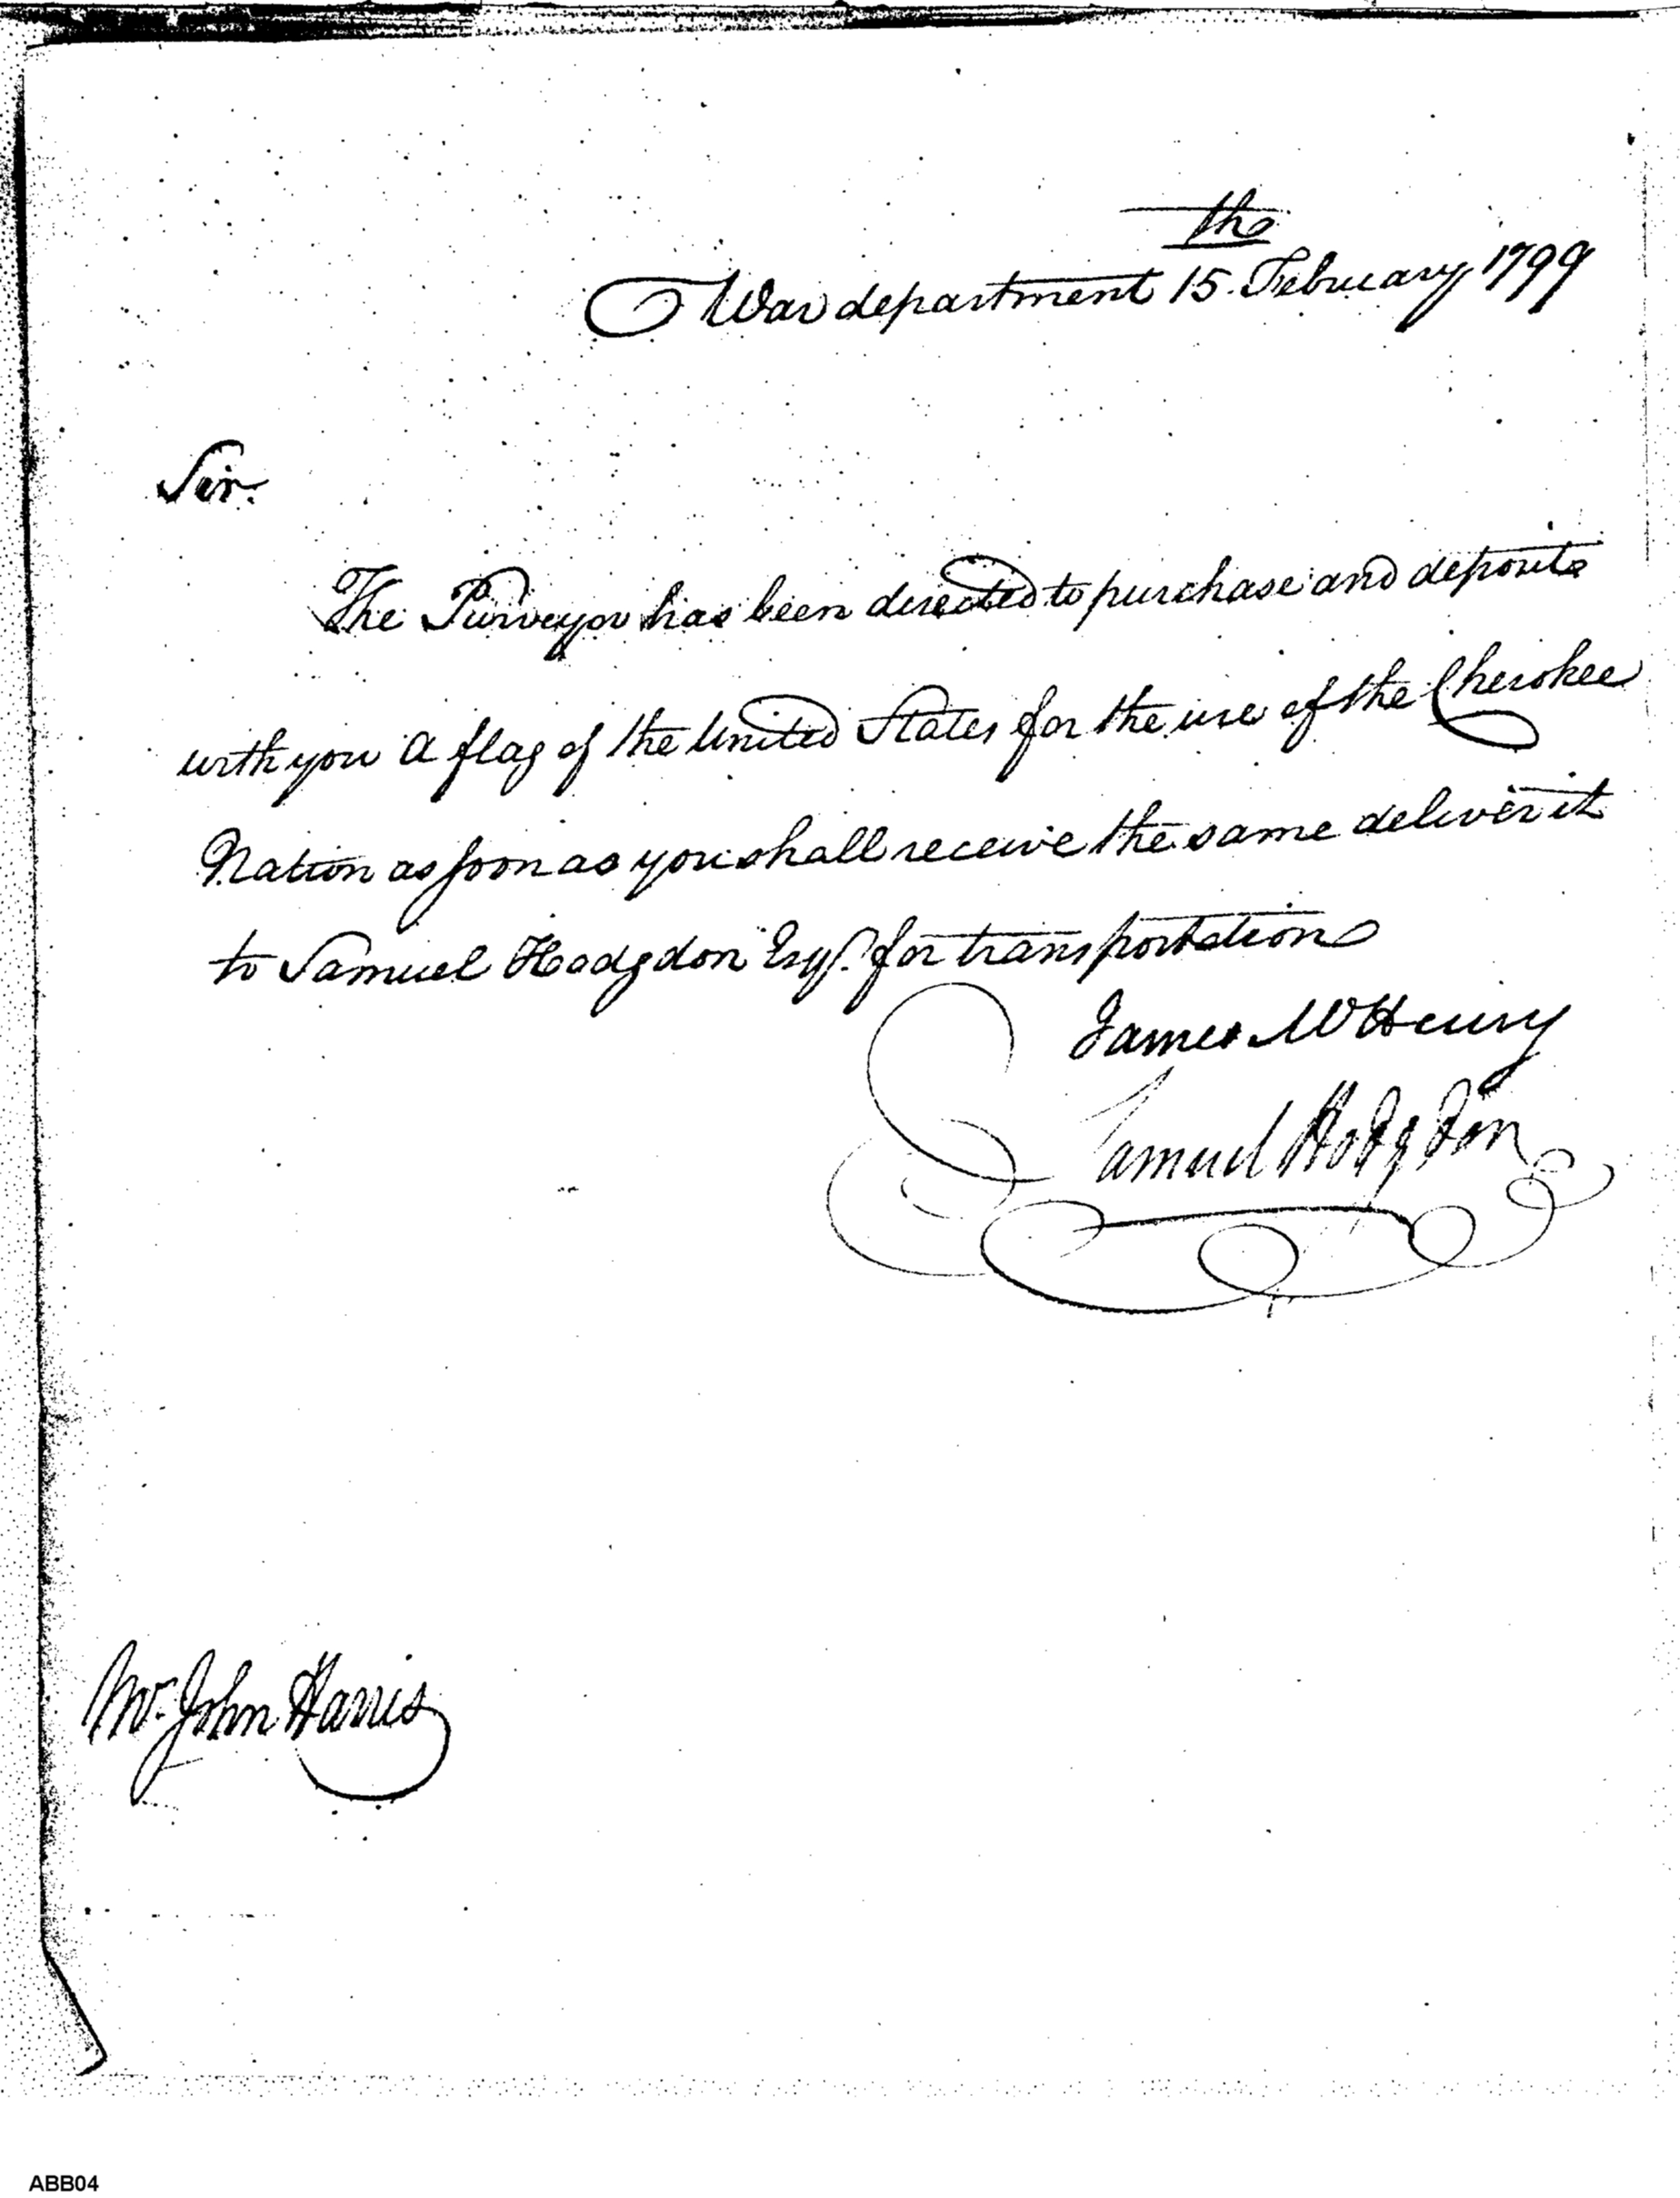 War department 15th February 1799
Sir.
The Purveyor has been directed to purchase and deposite
with you a flag of the United States for the use of the Cherokee
Nation as soon as you shall receive the same deliver it
to Samuel Hodgdon Esqr. for transportation
James McHenry
Samuel Hodgdon
Mr. John Harris
ABB04